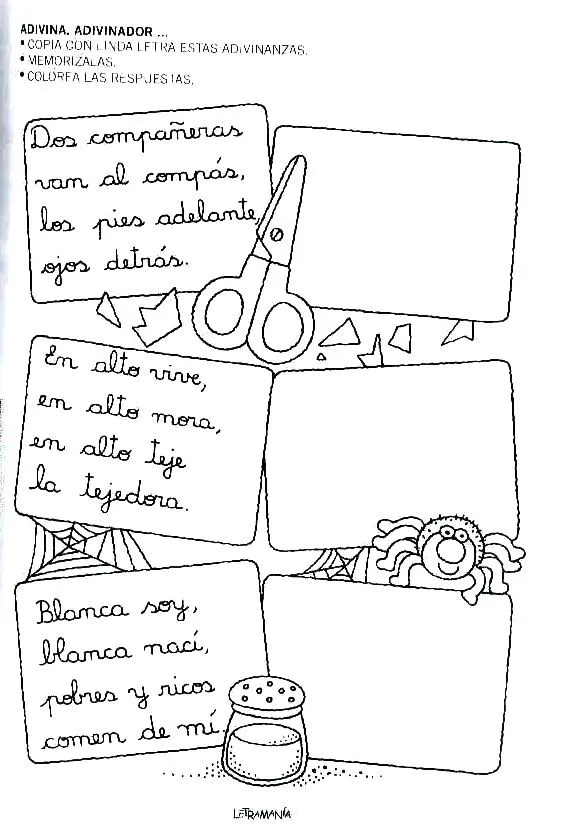 ADIVINA, ADIVINADOR ...
• COPIA CON LINDA LETRA ESTAS ADIVINANZAS.
• MEMORIZALAS.
• COLOREA LAS RESPUESTAS.
Dos compañeras
van al compás,
los pies adelante,
ojos detrás.
En alto vive,
en alto mora,
en alto teje
la tejedora.
Blanca soy,
blanca nací,
pobres y ricos
comen de mí.
LETRAMANÍA